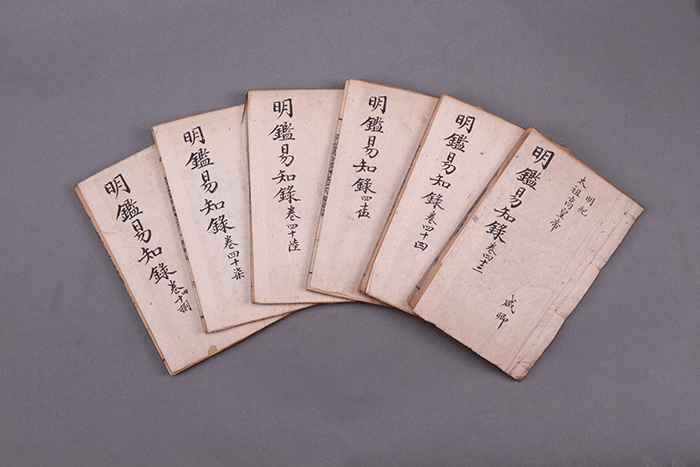 明紀
太祖高皇帝
咸卿
明鑑易知錄 卷四十三
明鑑易知錄 卷四十四
明鑑易知錄 四十五
明鑑易知錄 卷四十陸
明鑑易知錄 卷四十柒
明鑑易知錄 卷四十捌